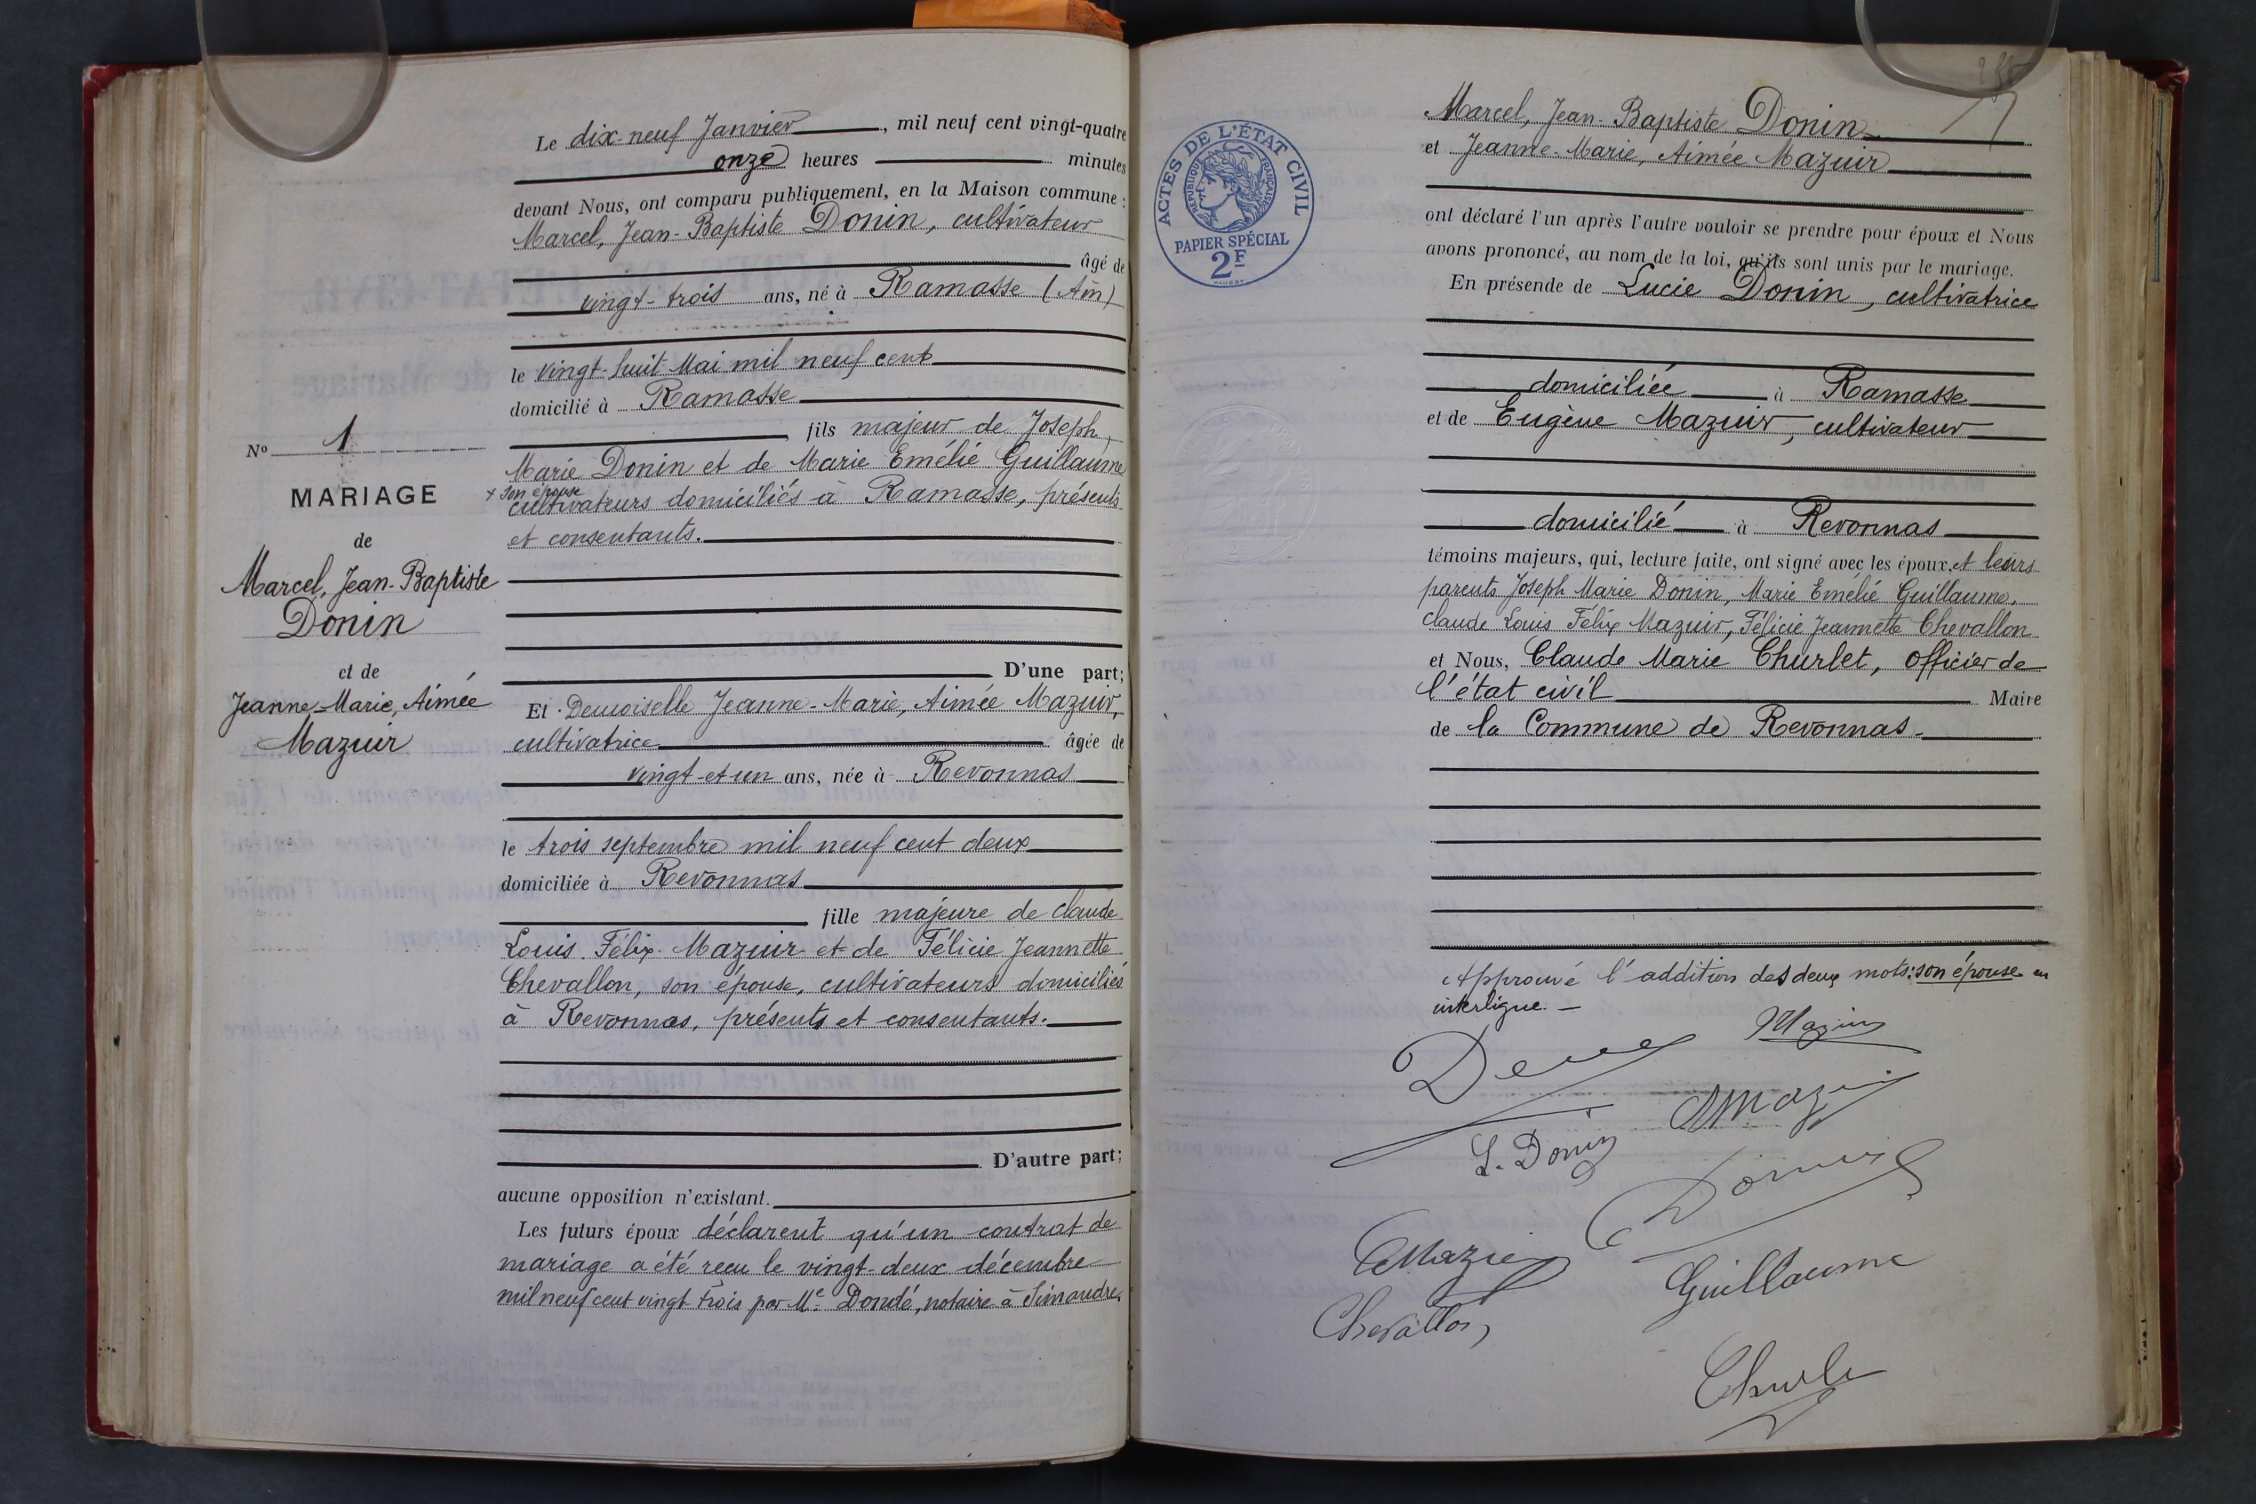 Le dix-neuf Janvier, mil neuf cent vingt-quatre
onze heures minutes
devant Nous, ont comparu publiquement, en la Maison commune :
Marcel, Jean-Baptiste Donin, cultivateur
âgé de
vingt-trois ans, né à Ramasse (Ain)
le vingt-huit Mai mil neuf cent
domicilié à Ramasse
fils majeur de Joseph,
Marie Donin et de Marie Emélie Guillaume
x son épouse
cultivateurs domiciliés à Ramasse, présents
et consentants.
D'une part;
Et Demoiselle Jeanne-Marie, Aimée Mazuir,
cultivatrice âgée de
vingt-et-un ans, née à Revonnas
le trois septembre mil neuf cent deux
domiciliée à Revonnas
fille majeure de Claude
Louis Félix Mazuir et de Félicie Jeannette
Chevallon, son épouse, cultivateurs domiciliés
à Revonnas, présents et consentants.
D'autre part;
aucune opposition n'existant.
Les futurs époux déclarent qu'un contrat de
mariage a été recu le vingt-deux décembre
mil neuf cent vingt trois par Me Dondé, notaire à Simandre.
No 1
MARIAGE
de
Marcel, Jean-Baptiste
Donin
et de
Jeanne-Marie, Aimée
Mazuir
ACTES DE L'ÉTAT CIVIL
RÉPUBLIQUE FRANÇAISE
PAPIER SPÉCIAL
2F
Marcel, Jean-Baptiste Donin
et Jeanne-Marie, Aimée Mazuir
ont déclaré l'un après l'autre vouloir se prendre pour époux et Nous
avons prononcé, au nom de la loi, qu'ils sont unis par le mariage.
En présende de Lucie Donin, cultivatrice
domiciliée à Ramasse
et de Eugène Mazuir, cultivateur
domicilié à Revonnas
témoins majeurs, qui, lecture faite, ont signé avec les époux, et leurs
parents Joseph Marie Donin, Marie Emélie Guillaume,
Claude Louis Félix Mazuir, Félicie Jeannette Chevallon
et Nous, Claude Marie Churlet, officier de
l'état civil Maire
de la Commune de Revonnas.
Approuvé l'addition des deux mots: son épouse en
interligne. -
Mazuir
L. Donin
Donin
Guillaume
Chevallon